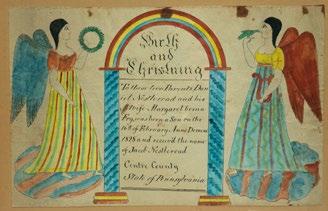 Birth
and
Chrisining
To these two Parents Dan
iel Nestlerood and his
Wife Margaret borna
Fry, was born a Son on the
16th of February Anno Domini
1828 and received the name
of Jacob Nestlerood
Centre County
State of Pennsylvania